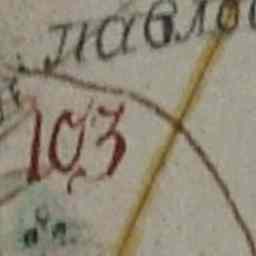 павло
103